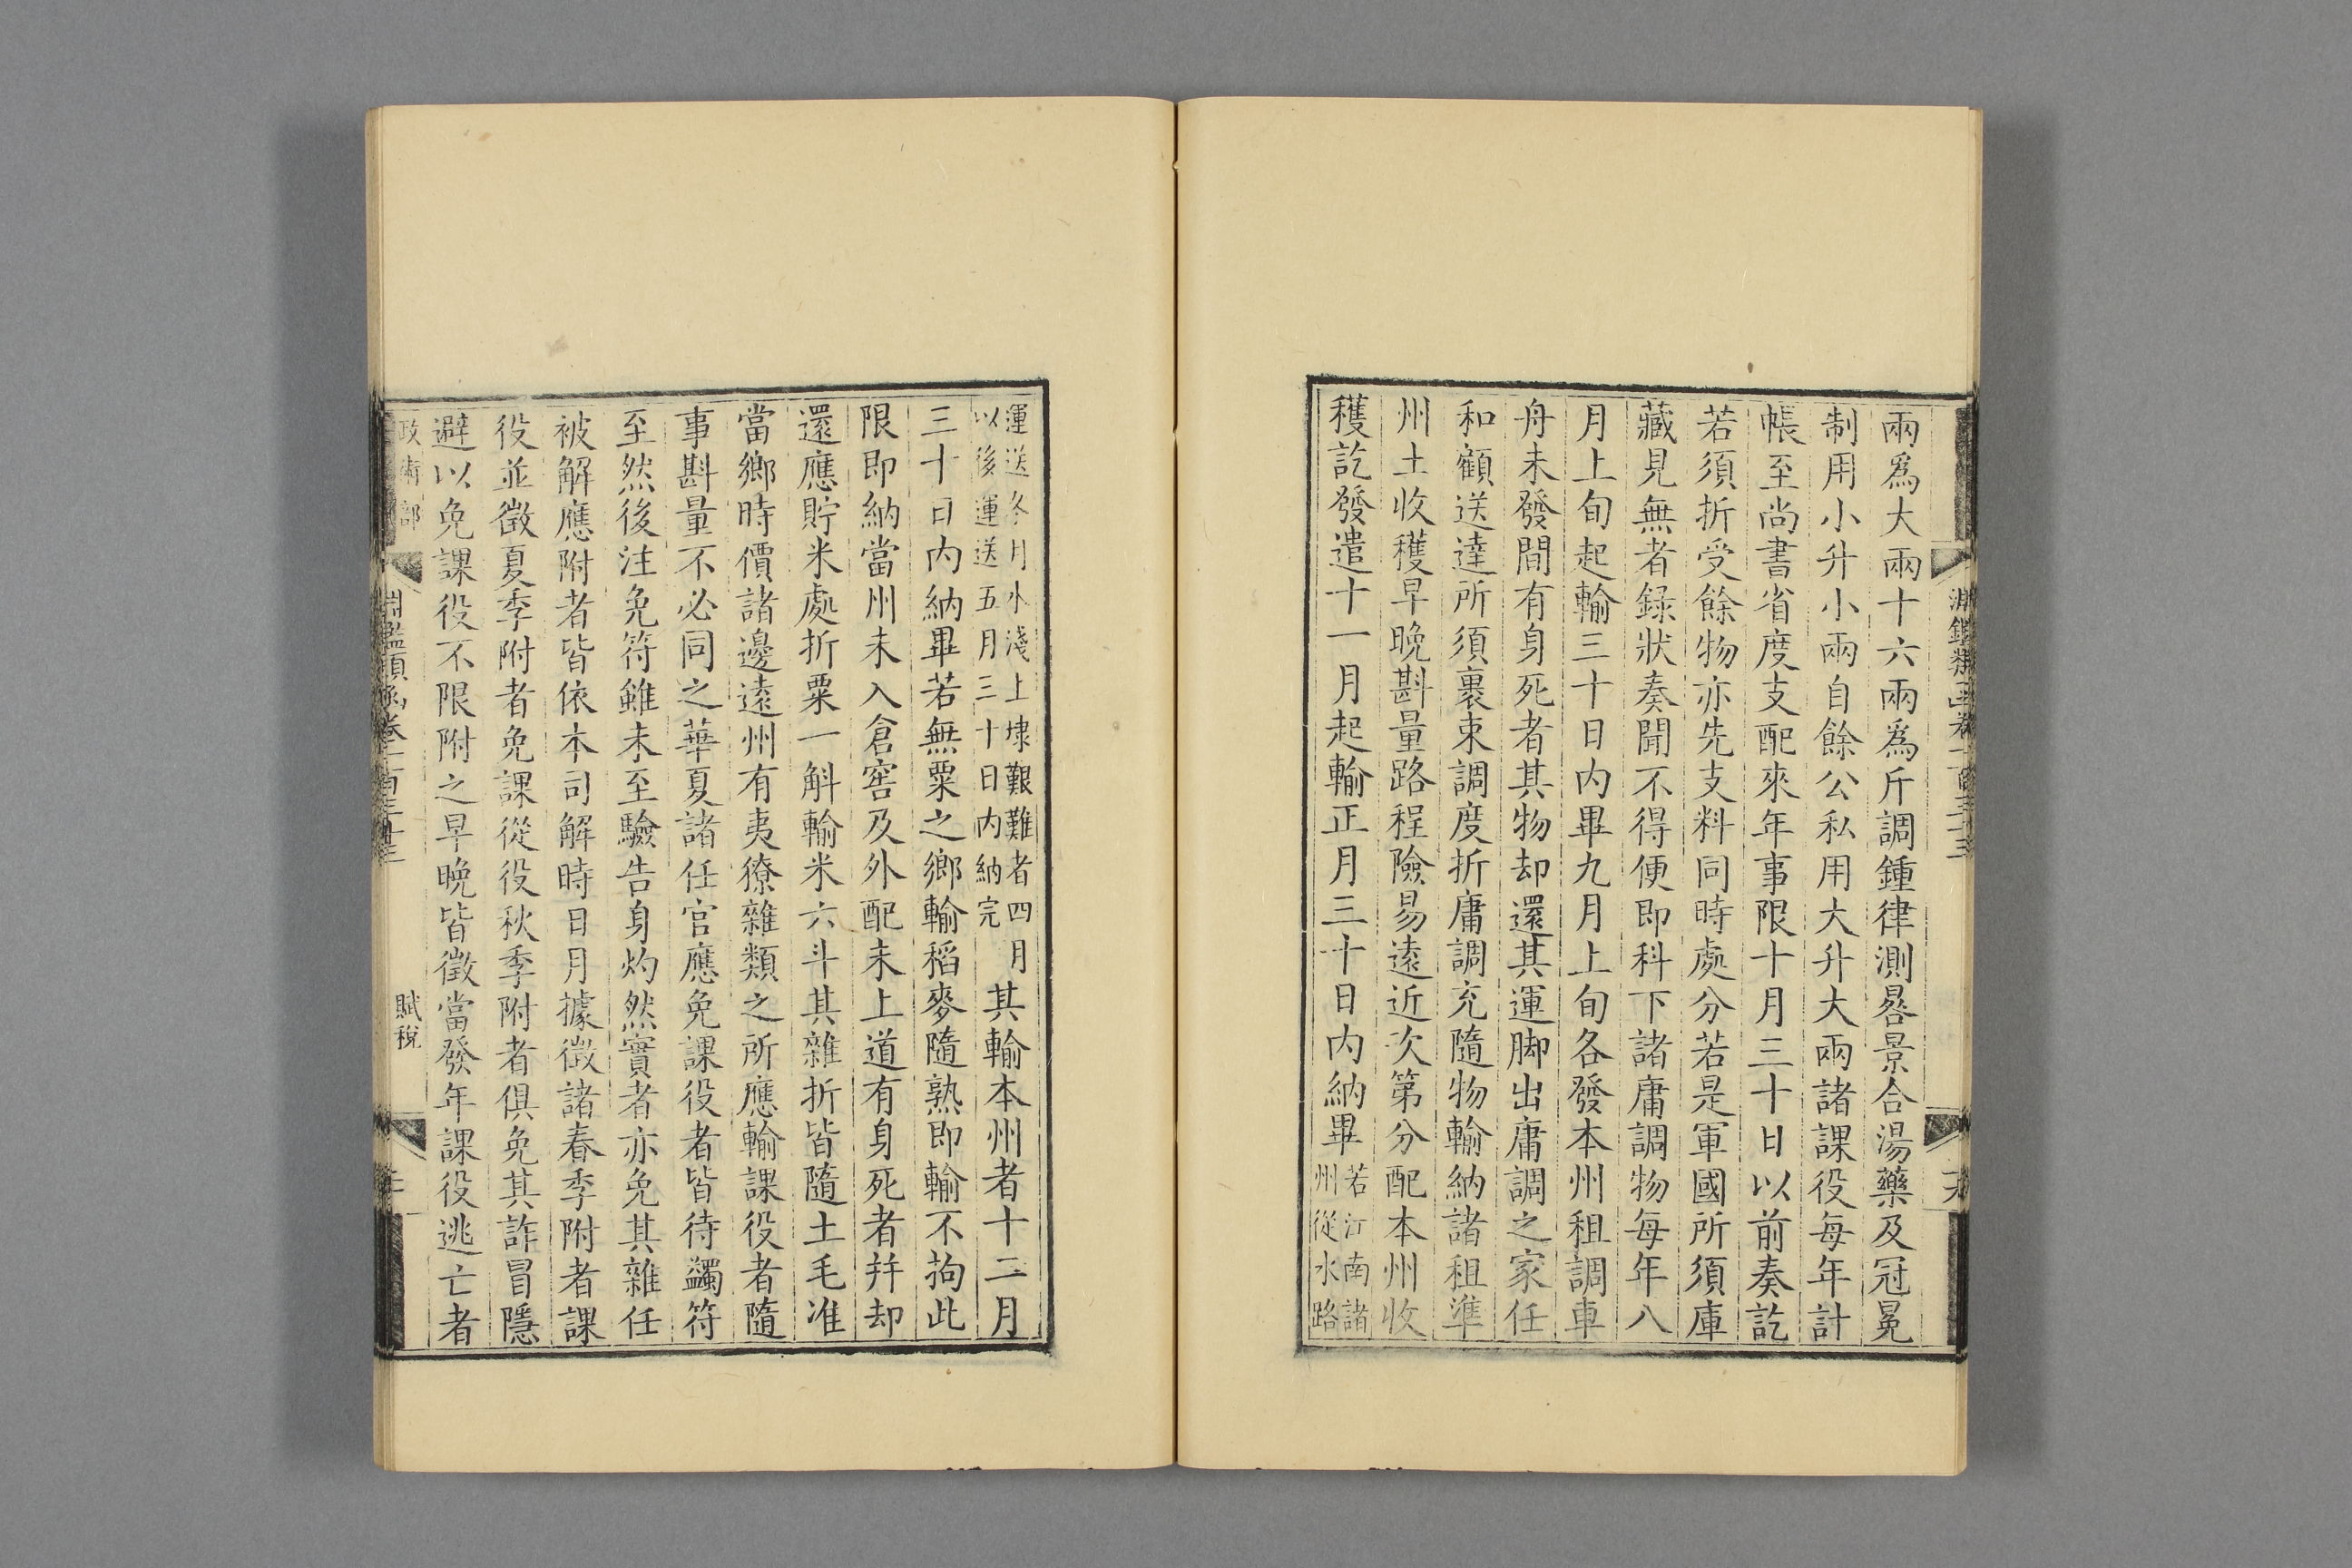 兩爲大兩十六兩爲斤調鍾律測晷景合湯藥及冠冕
制用小升小兩自餘公私用大升大兩諸課役每年計
帳至尚書省度支配來年事限十月三十日以前奏訖
若須折受餘物亦先支料同時處分若是軍國所須庫
藏見無者録狀奏聞不得便即科下諸庸調物每年八
月上旬起輸三十日内畢九月上旬各發本州租調車
舟未發間有身死者其物却還其運脚出庸調之家任
和顧送達所須裹束調度折庸調充隨物輸納諸租準
州土收穫早晩斟量路程險易遠近次第分配本州收
穫訖發遣十一月起輸正月三十日内納畢若江南諸
州從水路
運送冬月水淺上埭艱難者四月
以後運送五月三十日内納完其輸本州者十二月
三十日内納畢若無粟之鄉輸稻麥隨熟即輸不拘此
限即納當州未入倉窖及外配未上道有身死者并却
還應貯米處折粟一斛輸米六斗其雜折皆隨土毛准
當鄉時價諸邊遠州有夷獠雜類之所應輸課役者隨
事斟量不必同之華夏諸任官應免課役者皆待蠲符
至然後注免符雖未至驗告身灼然實者亦免其雜任
被解應附者皆依本司解時日月據徵諸春季附者課
役並徵夏季附者免課從役秋季附者俱免其詐冒隱
避以免課役不限附之早晩皆徵當發年課役逃亡者
政術部
淵鑑類函卷一百三十三
賦稅